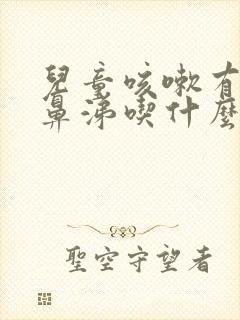 兒童咳嗽有
鼻涕喫什麼
聖空守望者